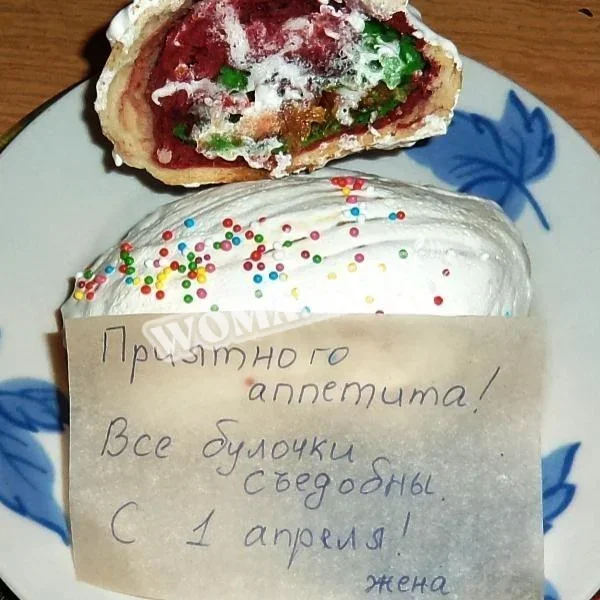 WOMA
Приятного
аппетита!
Все булочки
съедобны.
С 1 апреля!
жена